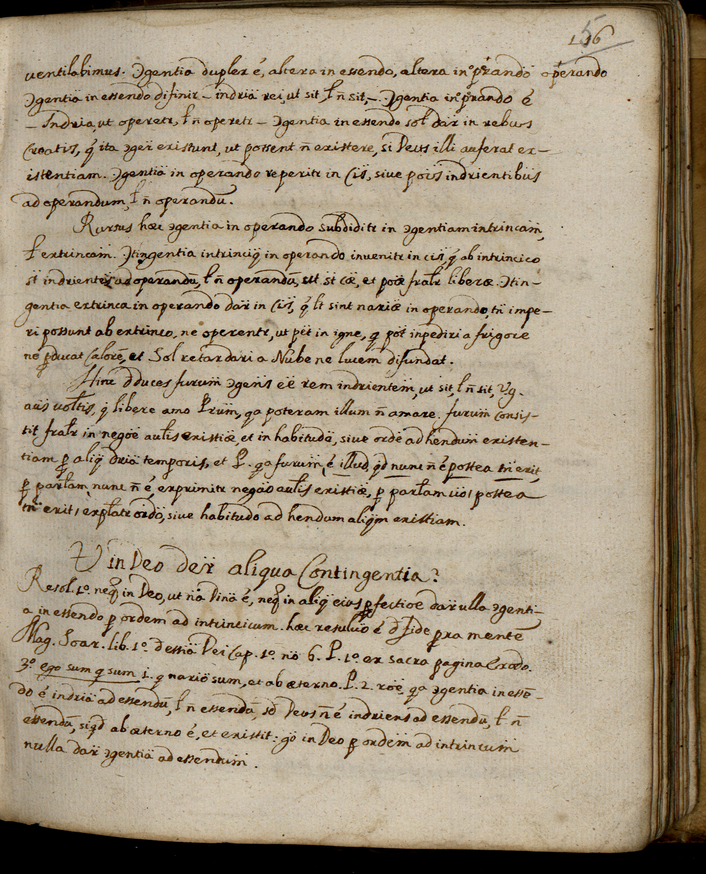 156
ventilabimus. Ↄgentia duplex é, altera in essendo, altera in operando
Ↄgentia in essendo difinir – indria rei, ut sit, ł ñ sit, – Ↄgentia in oprando é
– Indria, ut operetr, ł ñ operetr – Ↄgentia in essendo sol dar in rebus
Creatis, q ita ↄger existunt, ut possent ñ existere, si Deus illi auferat ex-
istentiam. Ↄgentia in operando reperitr in Cis, sive pois indrientibus
ad operandum, ł ñ operandu.
Rursus hæc ↄgentia in operando subdiditr in ↄgentiam intrincam,
ł extrincam. Ↄtingentia intrinciq in operando invenitr in cis, q ab intrincico
st indrientes ad operandũ, ł ñ operandũ, st cæ, et poæ fralr liberæ. Ↄtin-
gentia extrinca in operando dar in Cis, q lt sint nariæ in operando, tñ impe-
ri possunt ab extrinco, ne operentr, ut pet in igne, q pot inpediri a frigore
ne pducat Calorẽ, et Sol retardari a Nube ne lucem difundat.
Hinc dduces furum ↄgens eë rem indrientem, ut sit, ł ñ sit, Vg.
aus voltis, q libere amo Prum, qa poteram illum ñ amare. furum Consis-
tit fralr in negoë autlis existiæ, et in habituda, sive orde ad hendum existen-
tiam p aliq dria temporis, et P. qa furum, é illud qd nunc ñ é postea tñ erit,
p partlam nunc ñ é, exprimitr negao autlis existiæ, p partlam vo postea
tñ erit explatr ordo, sive habitudo ad hendum aliqm existiam.
V in Deo detr aliqua Contingentia?
Resol. 1º neq in Deo, ut na Dina é, neq in aliq eius pfectioe dar ulla ↄgenti-
a in essendo p ordem ad intrincicum. hæc resulio é d fide pra mentẽ
Mag. Soar. lib. 1º dessia Dei Cap. 1º nº 6. P. 1º ex sacra pagina Exodo.
3º ego sum q sum i. q nario sum, et ab æterno. P. 2. roë, qa ↄgentia in essẽ-
do é indria ad essendũ, ł ñ essendũ, sd Deus ñ é indriens ad essendũ, ł ñ
essendũ, siqd ab æterno é, et existit: go in Deo p ordem ad intrincum
nulla dar ↄgentia ad essendum.